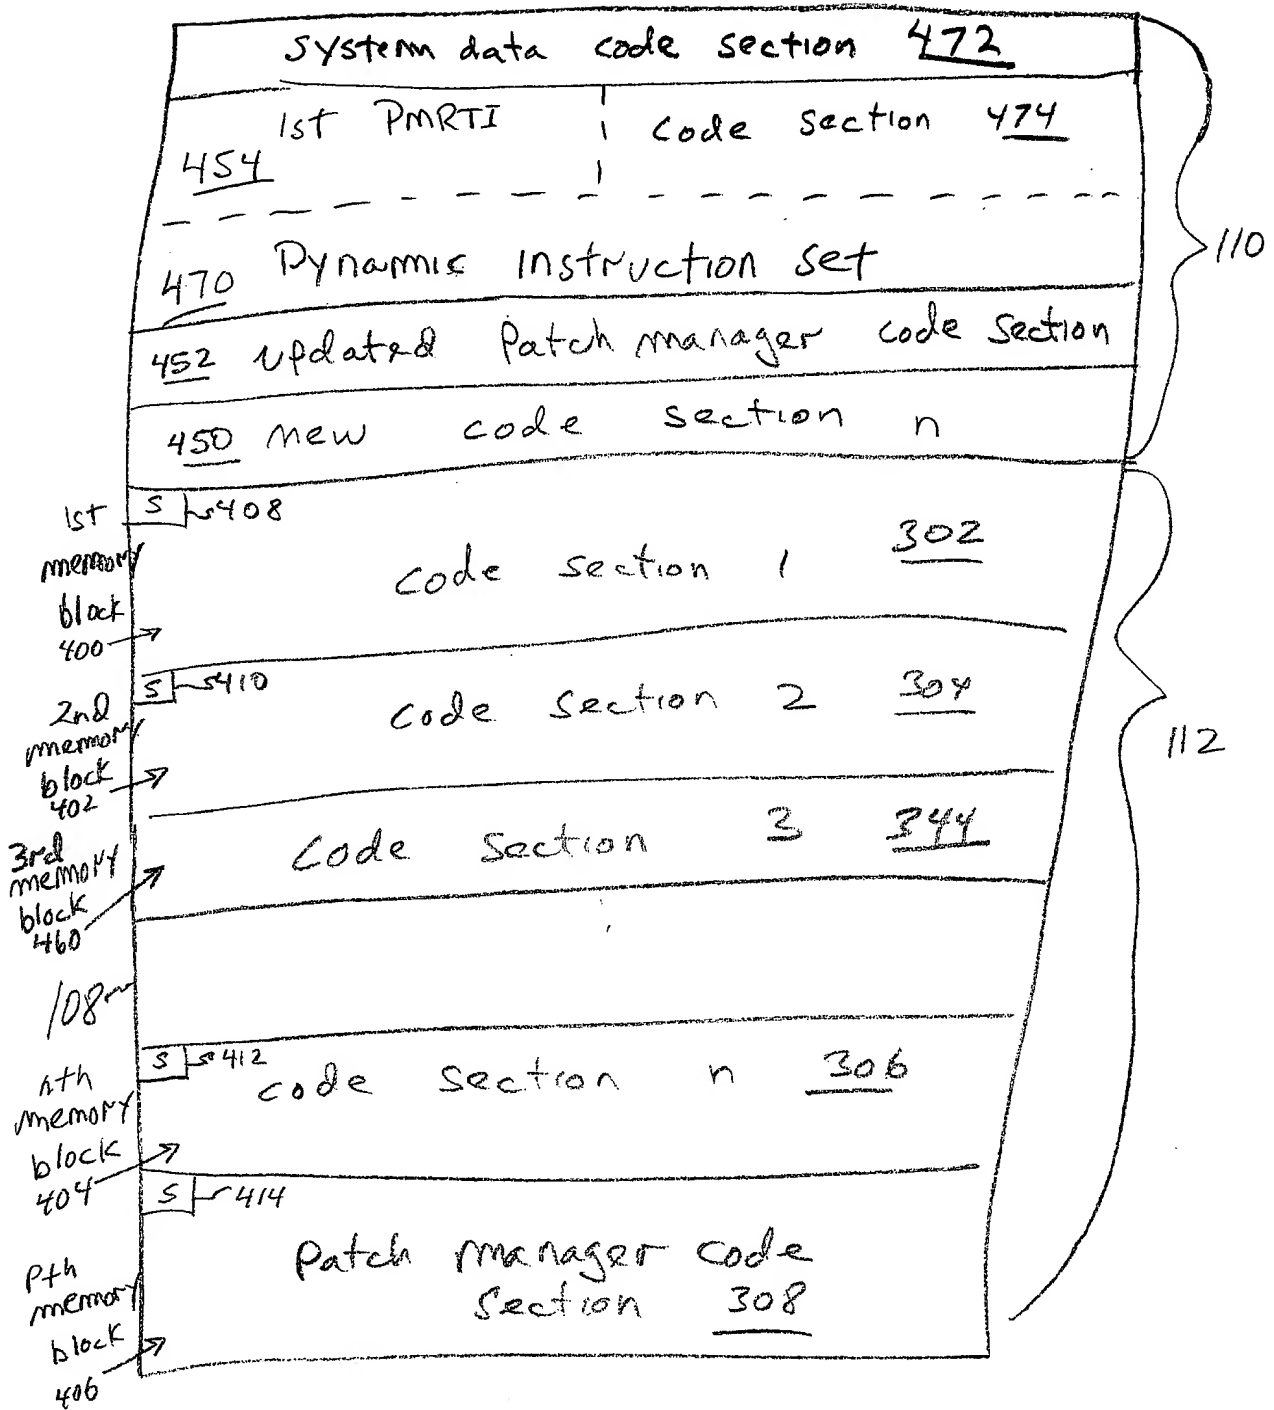 system data code section 472
1st PMRTI
code section 474
454
470 Dynamic instruction set
110
452 updated patch manager code section
450 new code section n
S 408
1st
memory
block
400
code section 1 302
S 410
2nd
memory
block
402
code section 2 304
112
3rd
memory
block
460
code section 3 344
108
S 412
nth
memory
block
404
code section n 306
S 414
Pth
memory
block
406
Patch manager code
section 308